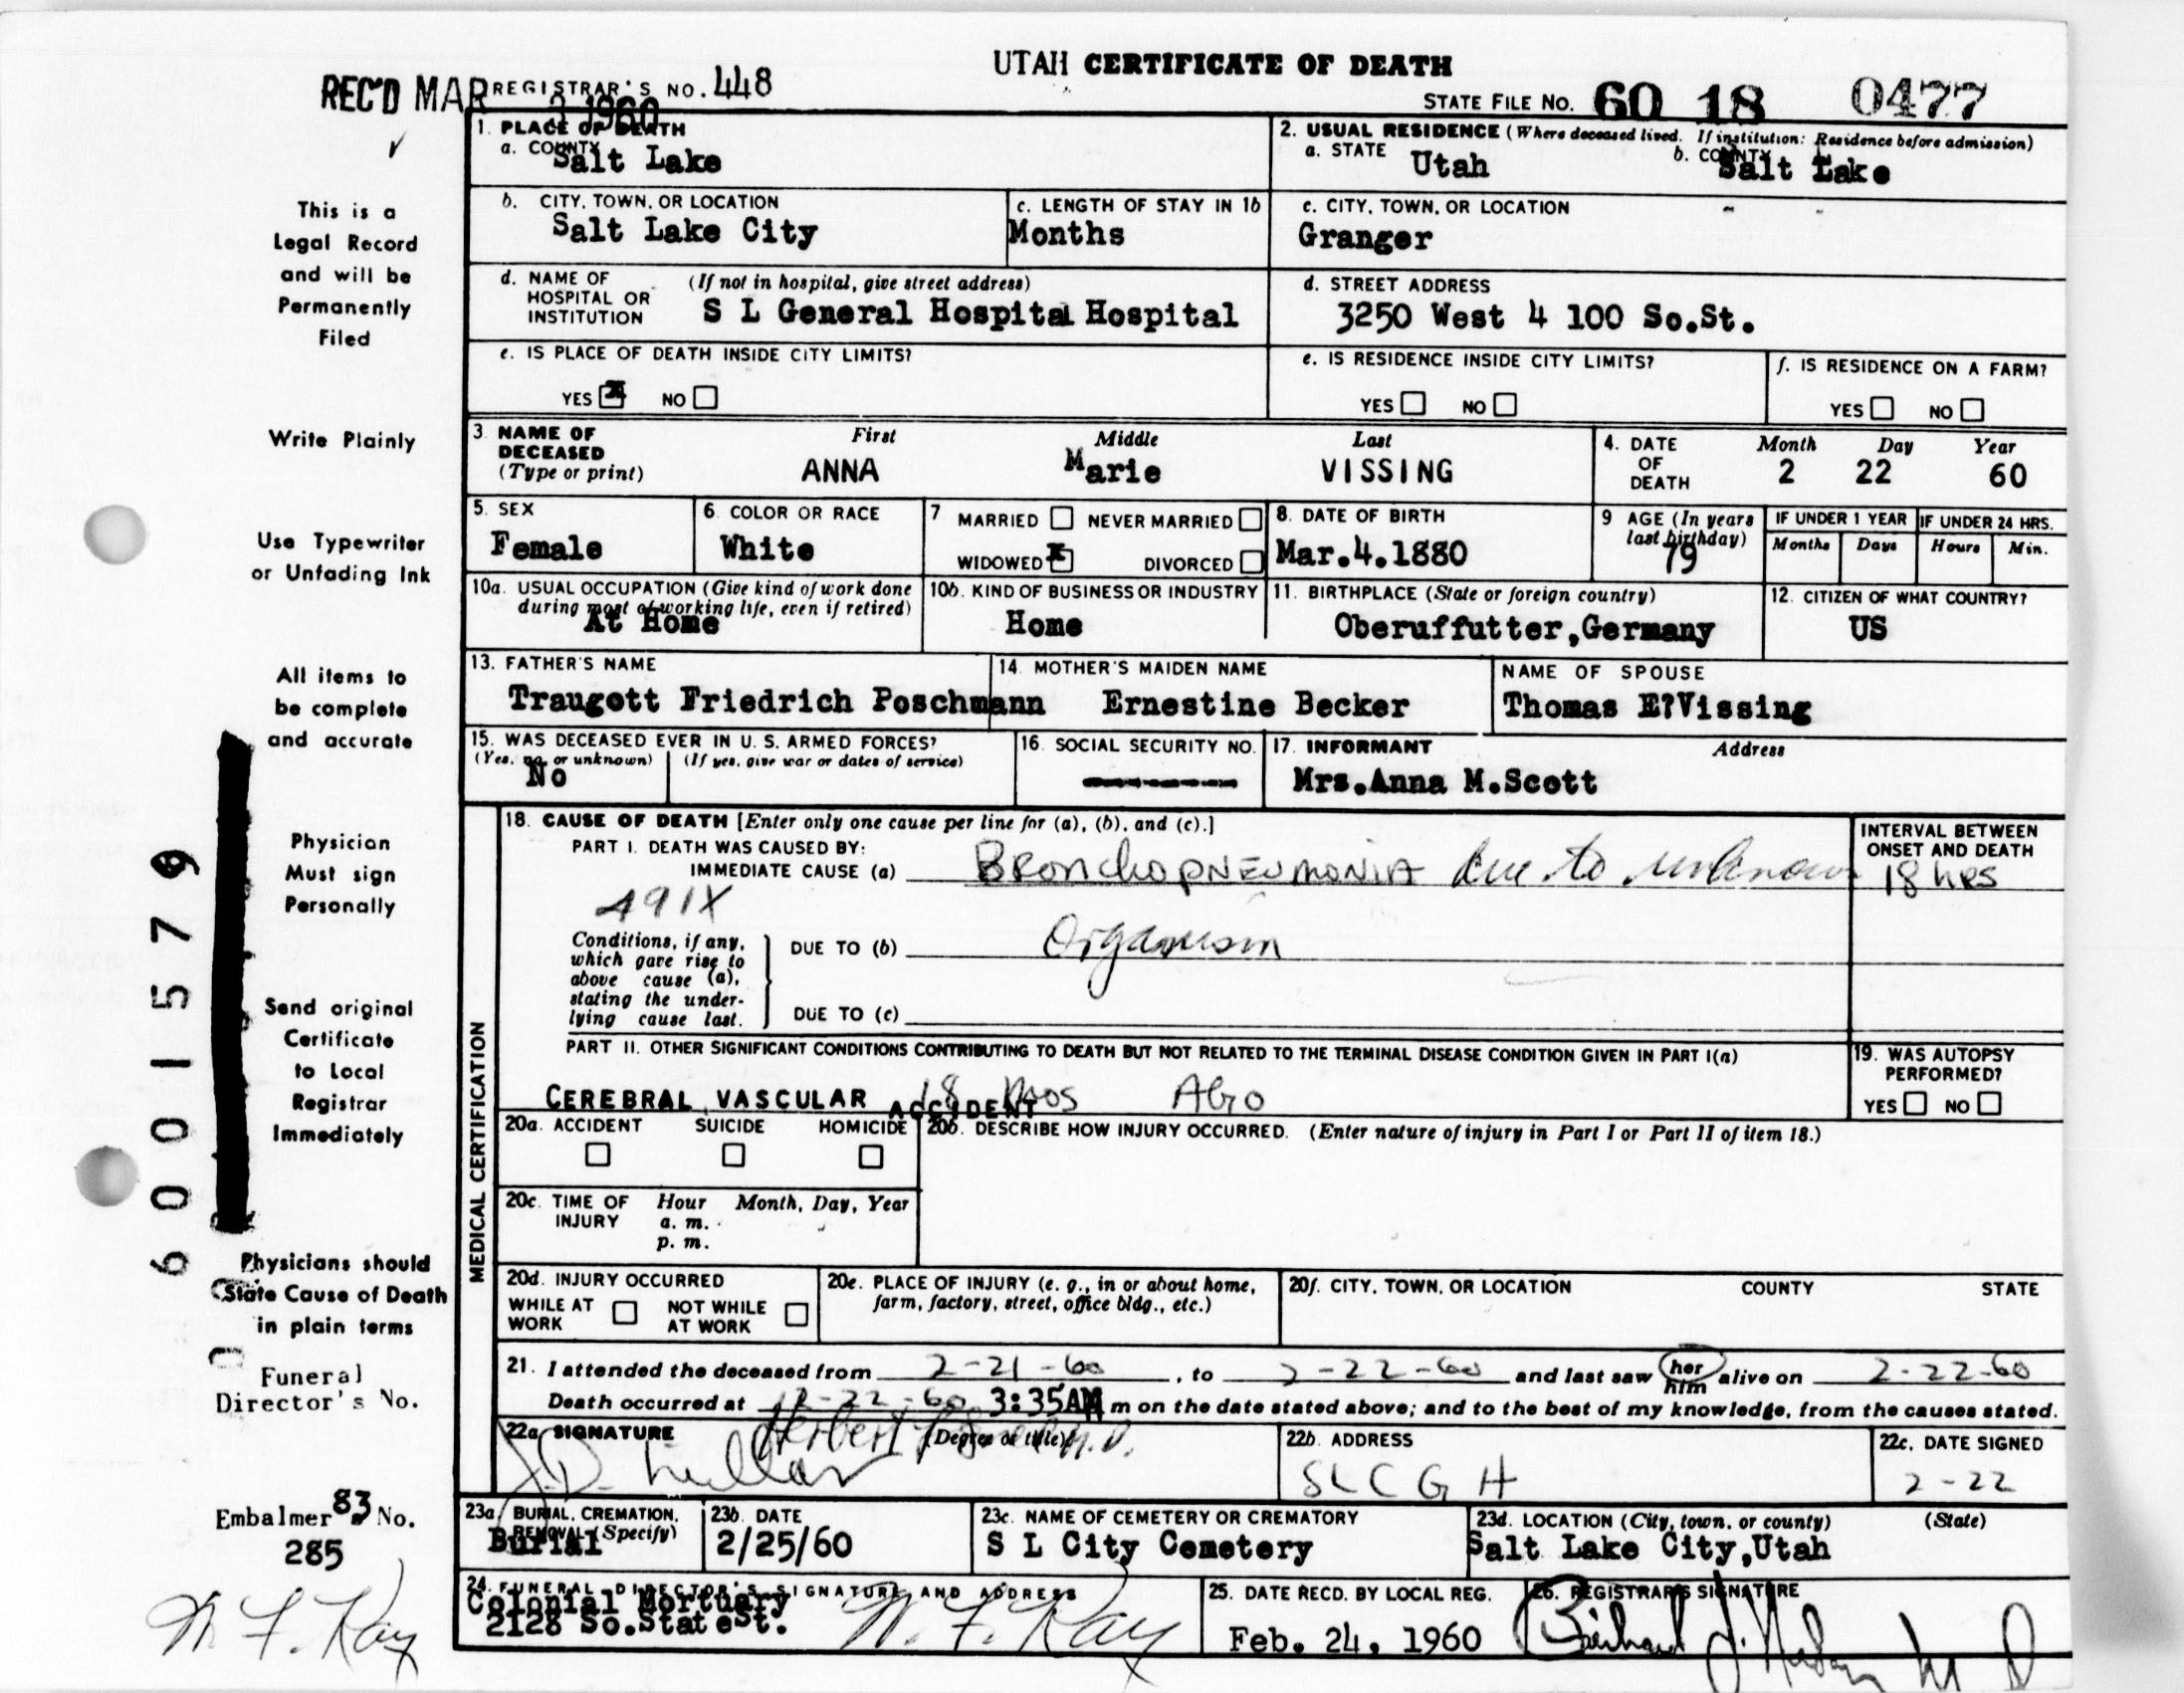 UTAH CERTIFICATE OF DEATH
REC'D MAR 3 1960
REGISTRAR'S NO. 448
STATE FILE NO. 60 18 0477
This is a
Legal Record
and will be
Permanently
Filed
Write Plainly
Use Typewriter
or Unfading Ink
All items to
be complete
and accurate
Physician
Must sign
Personally
Send original
Certificate
to Local
Registrar
Immediately
Physicians should
State Cause of Death
in plain terms
Funeral
Director's No.
83
Embalmer's No.
285
W. F. Kay
6001579
1. PLACE OF DEATH
a. COUNTY
Salt Lake
2. USUAL RESIDENCE (Where deceased lived. If institution: Residence before admission)
a. STATE Utah b. COUNTY Salt Lake
b. CITY, TOWN, OR LOCATION
Salt Lake City
c. LENGTH OF STAY IN 1b
Months
c. CITY, TOWN, OR LOCATION
Granger
d. NAME OF HOSPITAL OR INSTITUTION (If not in hospital, give street address)
S L General Hospital Hospital
d. STREET ADDRESS
3250 West 4 100 So.St.
e. IS PLACE OF DEATH INSIDE CITY LIMITS?
YES X NO
e. IS RESIDENCE INSIDE CITY LIMITS?
YES NO
f. IS RESIDENCE ON A FARM?
YES NO
3. NAME OF DECEASED (Type or print)
First Middle Last
ANNA Marie VISSING
4. DATE OF DEATH
Month Day Year
2 22 60
5. SEX
Female
6. COLOR OR RACE
White
7 MARRIED NEVER MARRIED
WIDOWED X DIVORCED
8. DATE OF BIRTH
Mar.4.1880
9 AGE (In years last birthday)
79
IF UNDER 1 YEAR
Months Days
IF UNDER 24 HRS.
Hours Min.
10a. USUAL OCCUPATION (Give kind of work done during most of working life, even if retired)
At Home
10b. KIND OF BUSINESS OR INDUSTRY
Home
11. BIRTHPLACE (State or foreign country)
Oberuffutter,Germany
12. CITIZEN OF WHAT COUNTRY?
US
13. FATHER'S NAME
Traugott Friedrich Poschmann
14. MOTHER'S MAIDEN NAME
Ernestine Becker
NAME OF SPOUSE
Thomas E?Vissing
15. WAS DECEASED EVER IN U. S. ARMED FORCES?
(Yes, no, or unknown) (If yes, give war or dates of service)
No
16. SOCIAL SECURITY NO.
17. INFORMANT Address
Mrs.Anna M.Scott
MEDICAL CERTIFICATION
18. CAUSE OF DEATH [Enter only one cause per line for (a), (b), and (c).]
PART I. DEATH WAS CAUSED BY:
IMMEDIATE CAUSE (a) Bronchopneumonia due to unknown
INTERVAL BETWEEN ONSET AND DEATH
18 hrs
491X
Conditions, if any, which gave rise to above cause (a), stating the underlying cause last.
DUE TO (b) Organism
DUE TO (c)
PART II. OTHER SIGNIFICANT CONDITIONS CONTRIBUTING TO DEATH BUT NOT RELATED TO THE TERMINAL DISEASE CONDITION GIVEN IN PART I(a)
CEREBRAL VASCULAR ACCIDENT 18 mos AGO
19. WAS AUTOPSY PERFORMED?
YES NO
20a. ACCIDENT SUICIDE HOMICIDE
20b. DESCRIBE HOW INJURY OCCURRED. (Enter nature of injury in Part I or Part II of item 18.)
20c. TIME OF INJURY Hour Month, Day, Year
a. m.
p. m.
20d. INJURY OCCURRED
WHILE AT WORK NOT WHILE AT WORK
20e. PLACE OF INJURY (e. g., in or about home, farm, factory, street, office bldg., etc.)
20f. CITY, TOWN, OR LOCATION COUNTY STATE
21. I attended the deceased from 2-21-60, to 2-22-60 and last saw her him alive on 2-22-60
Death occurred at 2-22-60 3:35AM m on the date stated above; and to the best of my knowledge, from the causes stated.
22a. SIGNATURE (Degree or title)
Herbert M.D.
22b. ADDRESS
SLCGH
22c. DATE SIGNED
2-22
23a. BURIAL, CREMATION, REMOVAL (Specify)
Burial
23b. DATE
2/25/60
23c. NAME OF CEMETERY OR CREMATORY
S L City Cemetery
23d. LOCATION (City, town, or county) (State)
Salt Lake City,Utah
24. FUNERAL DIRECTOR'S SIGNATURE AND ADDRESS
Colonial Mortuary
2128 So.State St.
W. F. Kay
25. DATE RECD. BY LOCAL REG.
Feb. 24, 1960
26. REGISTRAR'S SIGNATURE
M D